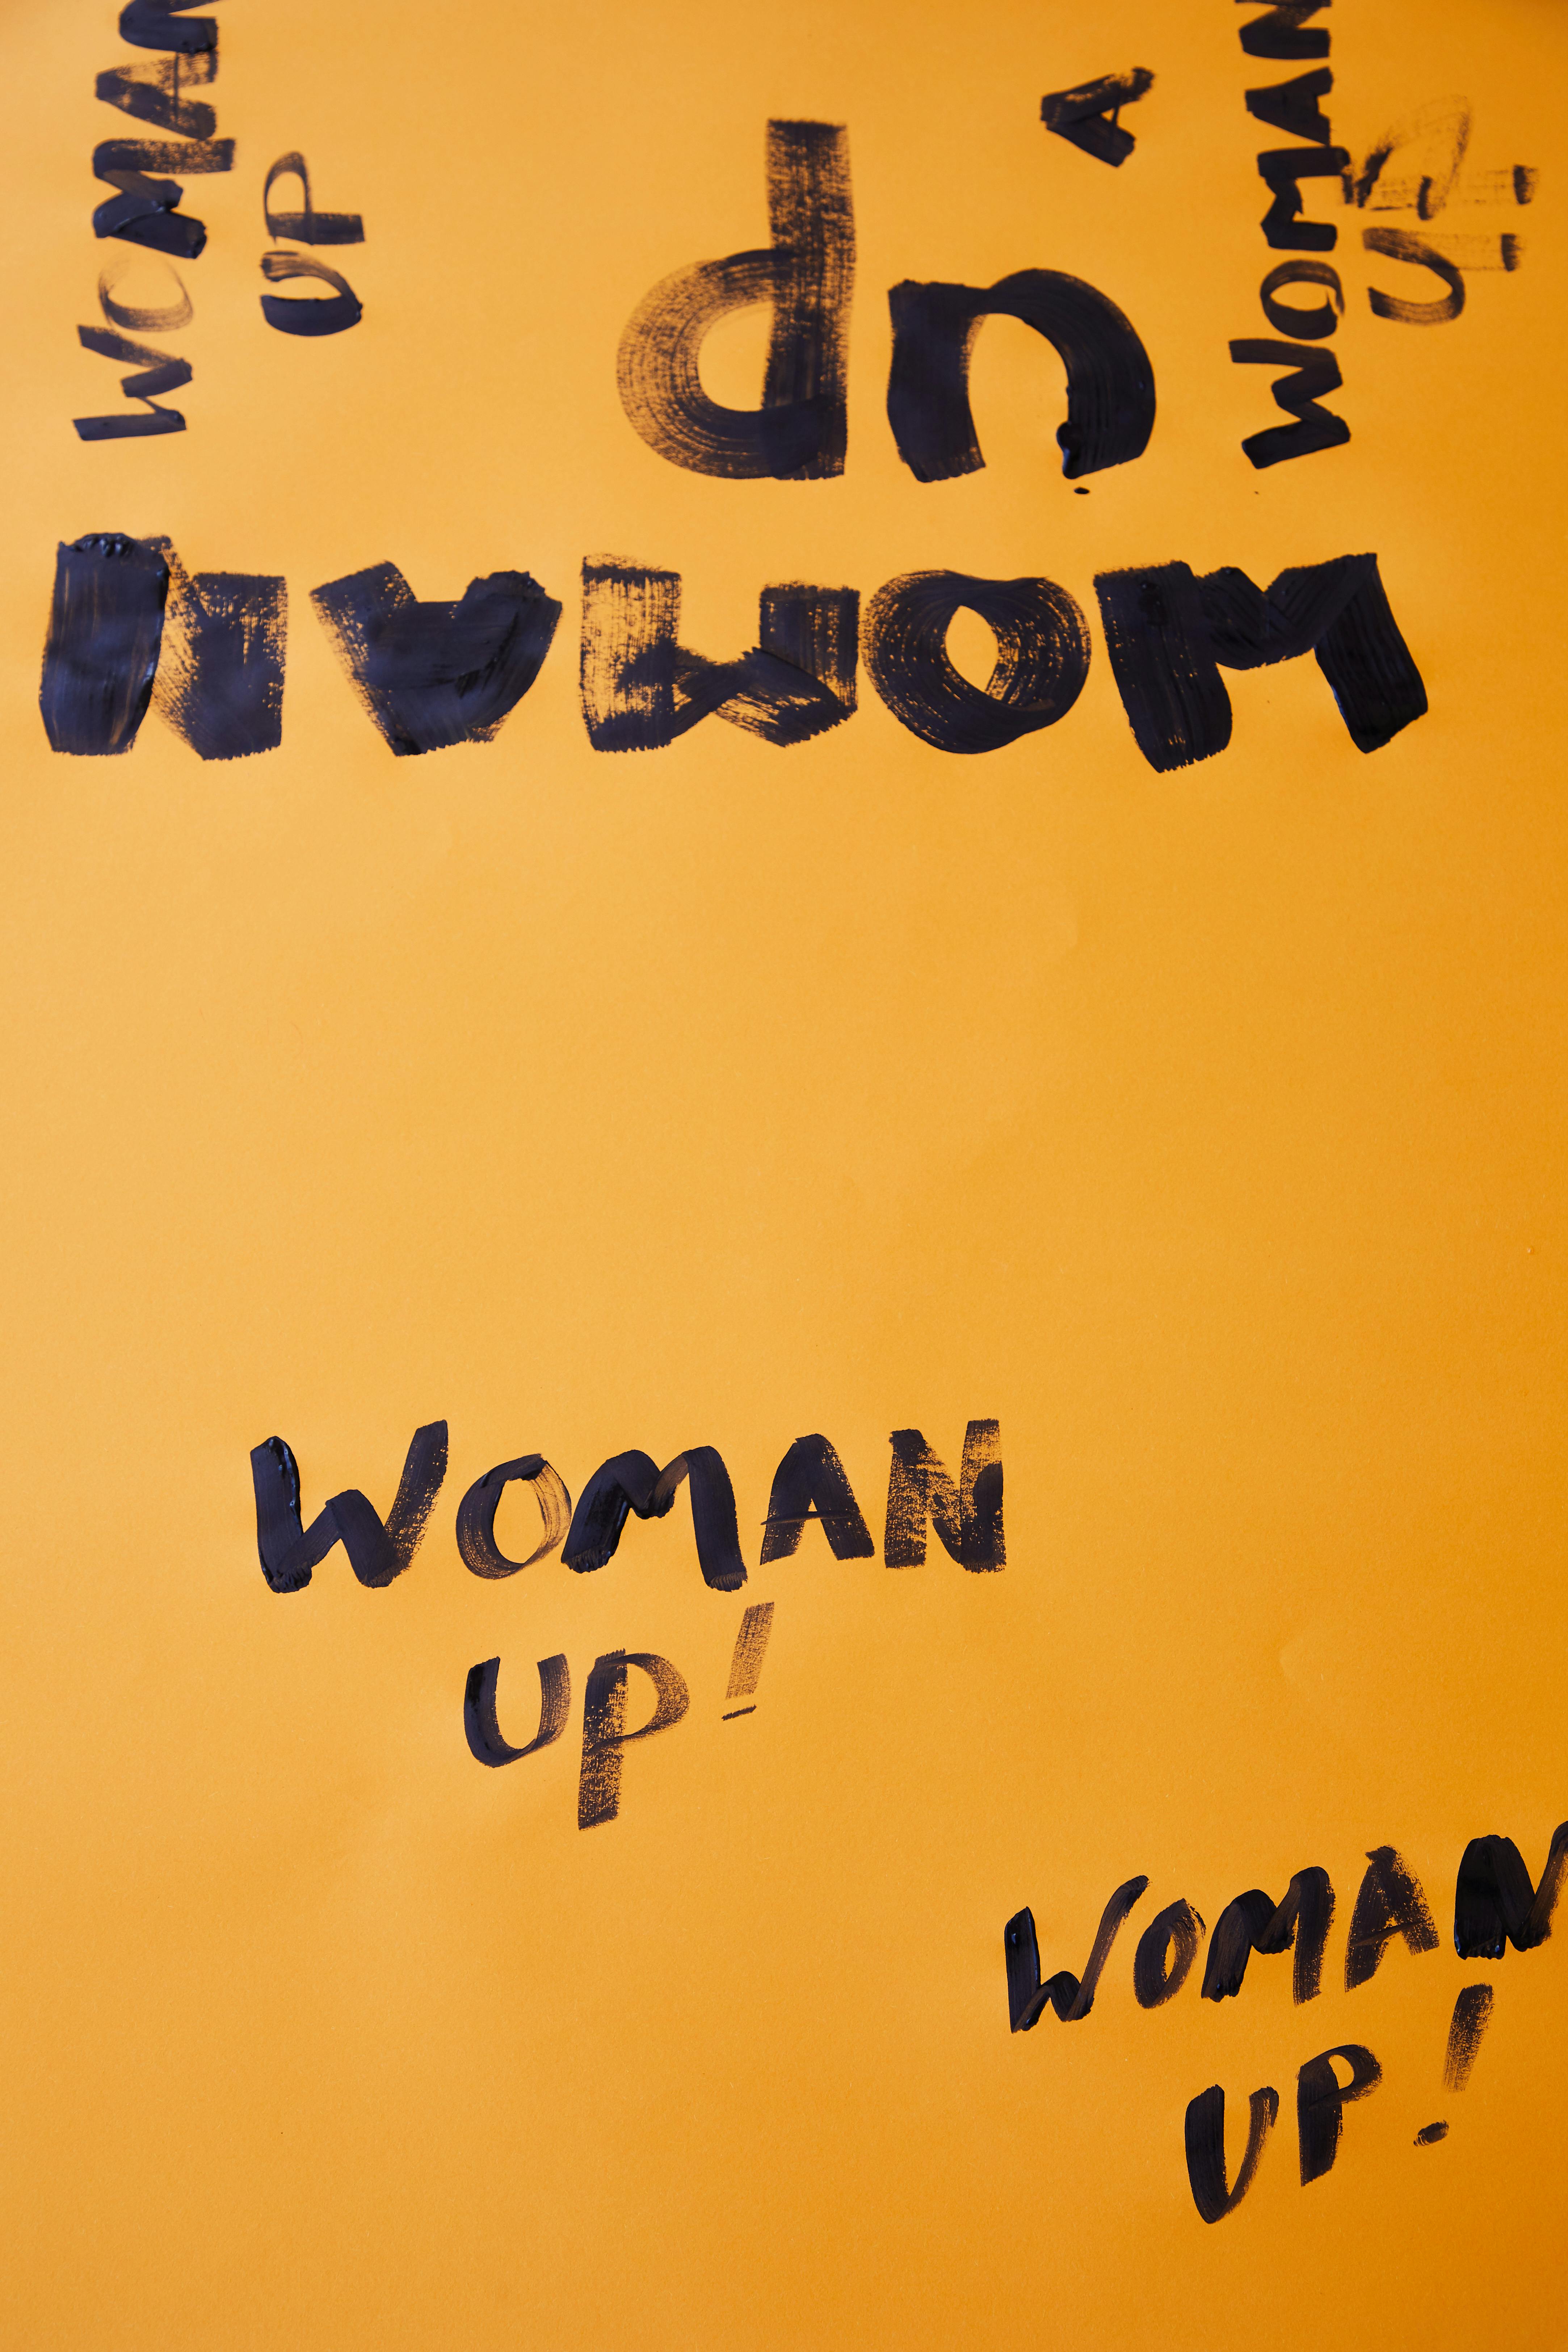 WOMAN
UP
A
WOMAN
UP!!
WOMAN
UP
WOMAN
UP!
WOMAN
UP!